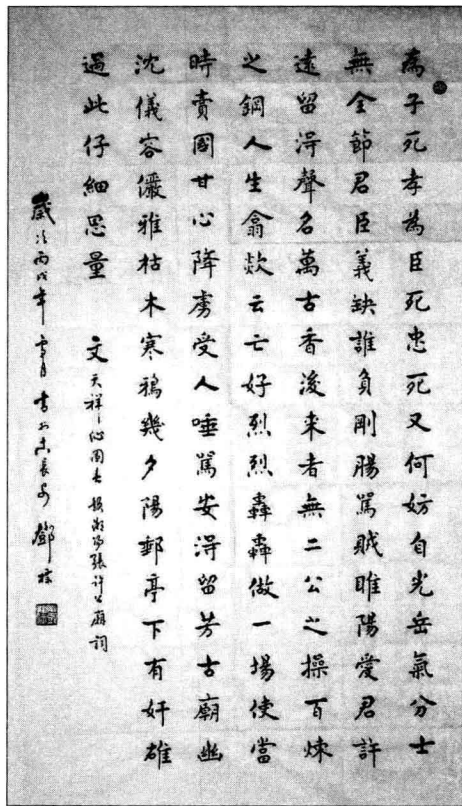 為子死孝為臣死忠死又何妨自光岳氣分士
無全節君臣義缺誰負剛腸罵賊睢陽愛君許
遠留淂聲名萬古香後来者無二公之操百煉
之鋼人生翕欻云亡好烈烈轟轟做一場使當
時賣國甘心降虜受人唾罵安淂留芳古廟幽
沈儀容儼雅枯木寒鴉幾夕陽郵亭下有奸雄
過此仔細思量 文天祥沁園春 張許公廟詞
歲次丙戌年 月書於古長安 鄧